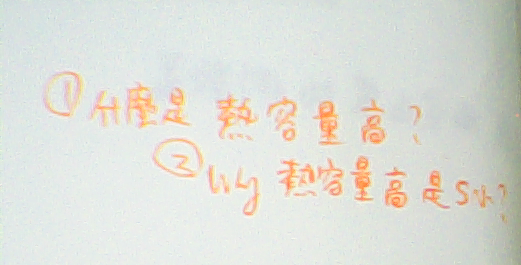 ①什麼是 熱容量高?
②Wy 熱容量高是S水?